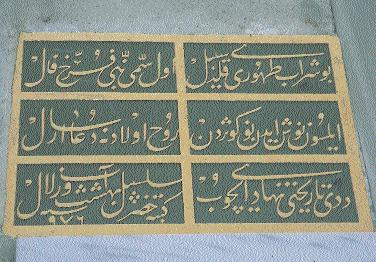 بو شراب طهوری قیلدی سبیل
اول سمی نبی فرخ فال
ایلسون نوش ایدن بو کوثردن
روح اولادنه دعا ارسال
ددی تاریخنی نهادی اچوب
سلسبیل بهشت زلال